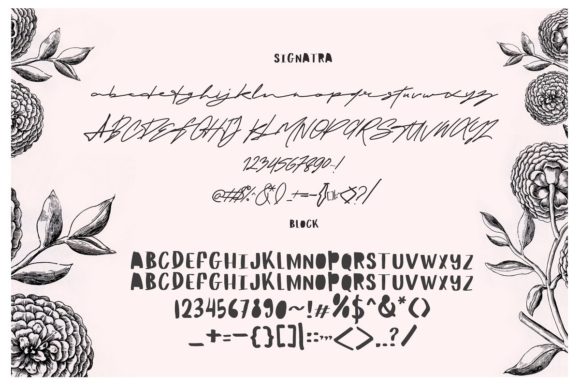 SIGNATRA
abcdefghijklmnopqrstuvwxyz
ABCDEFGHIJ KLMNOPQRSTUVWXYZ
1234567890-!
@#$%^&*() _+=-{}[]<>?/
BLOCK
ABCDEFGHIJKLMNOPQRSTUVWXYZ
ABCDEFGHIJKLMNOPQRSTUVWXYZ
1234567890~!#%$^&*()
_+=-{}[]|:;",<>..?/